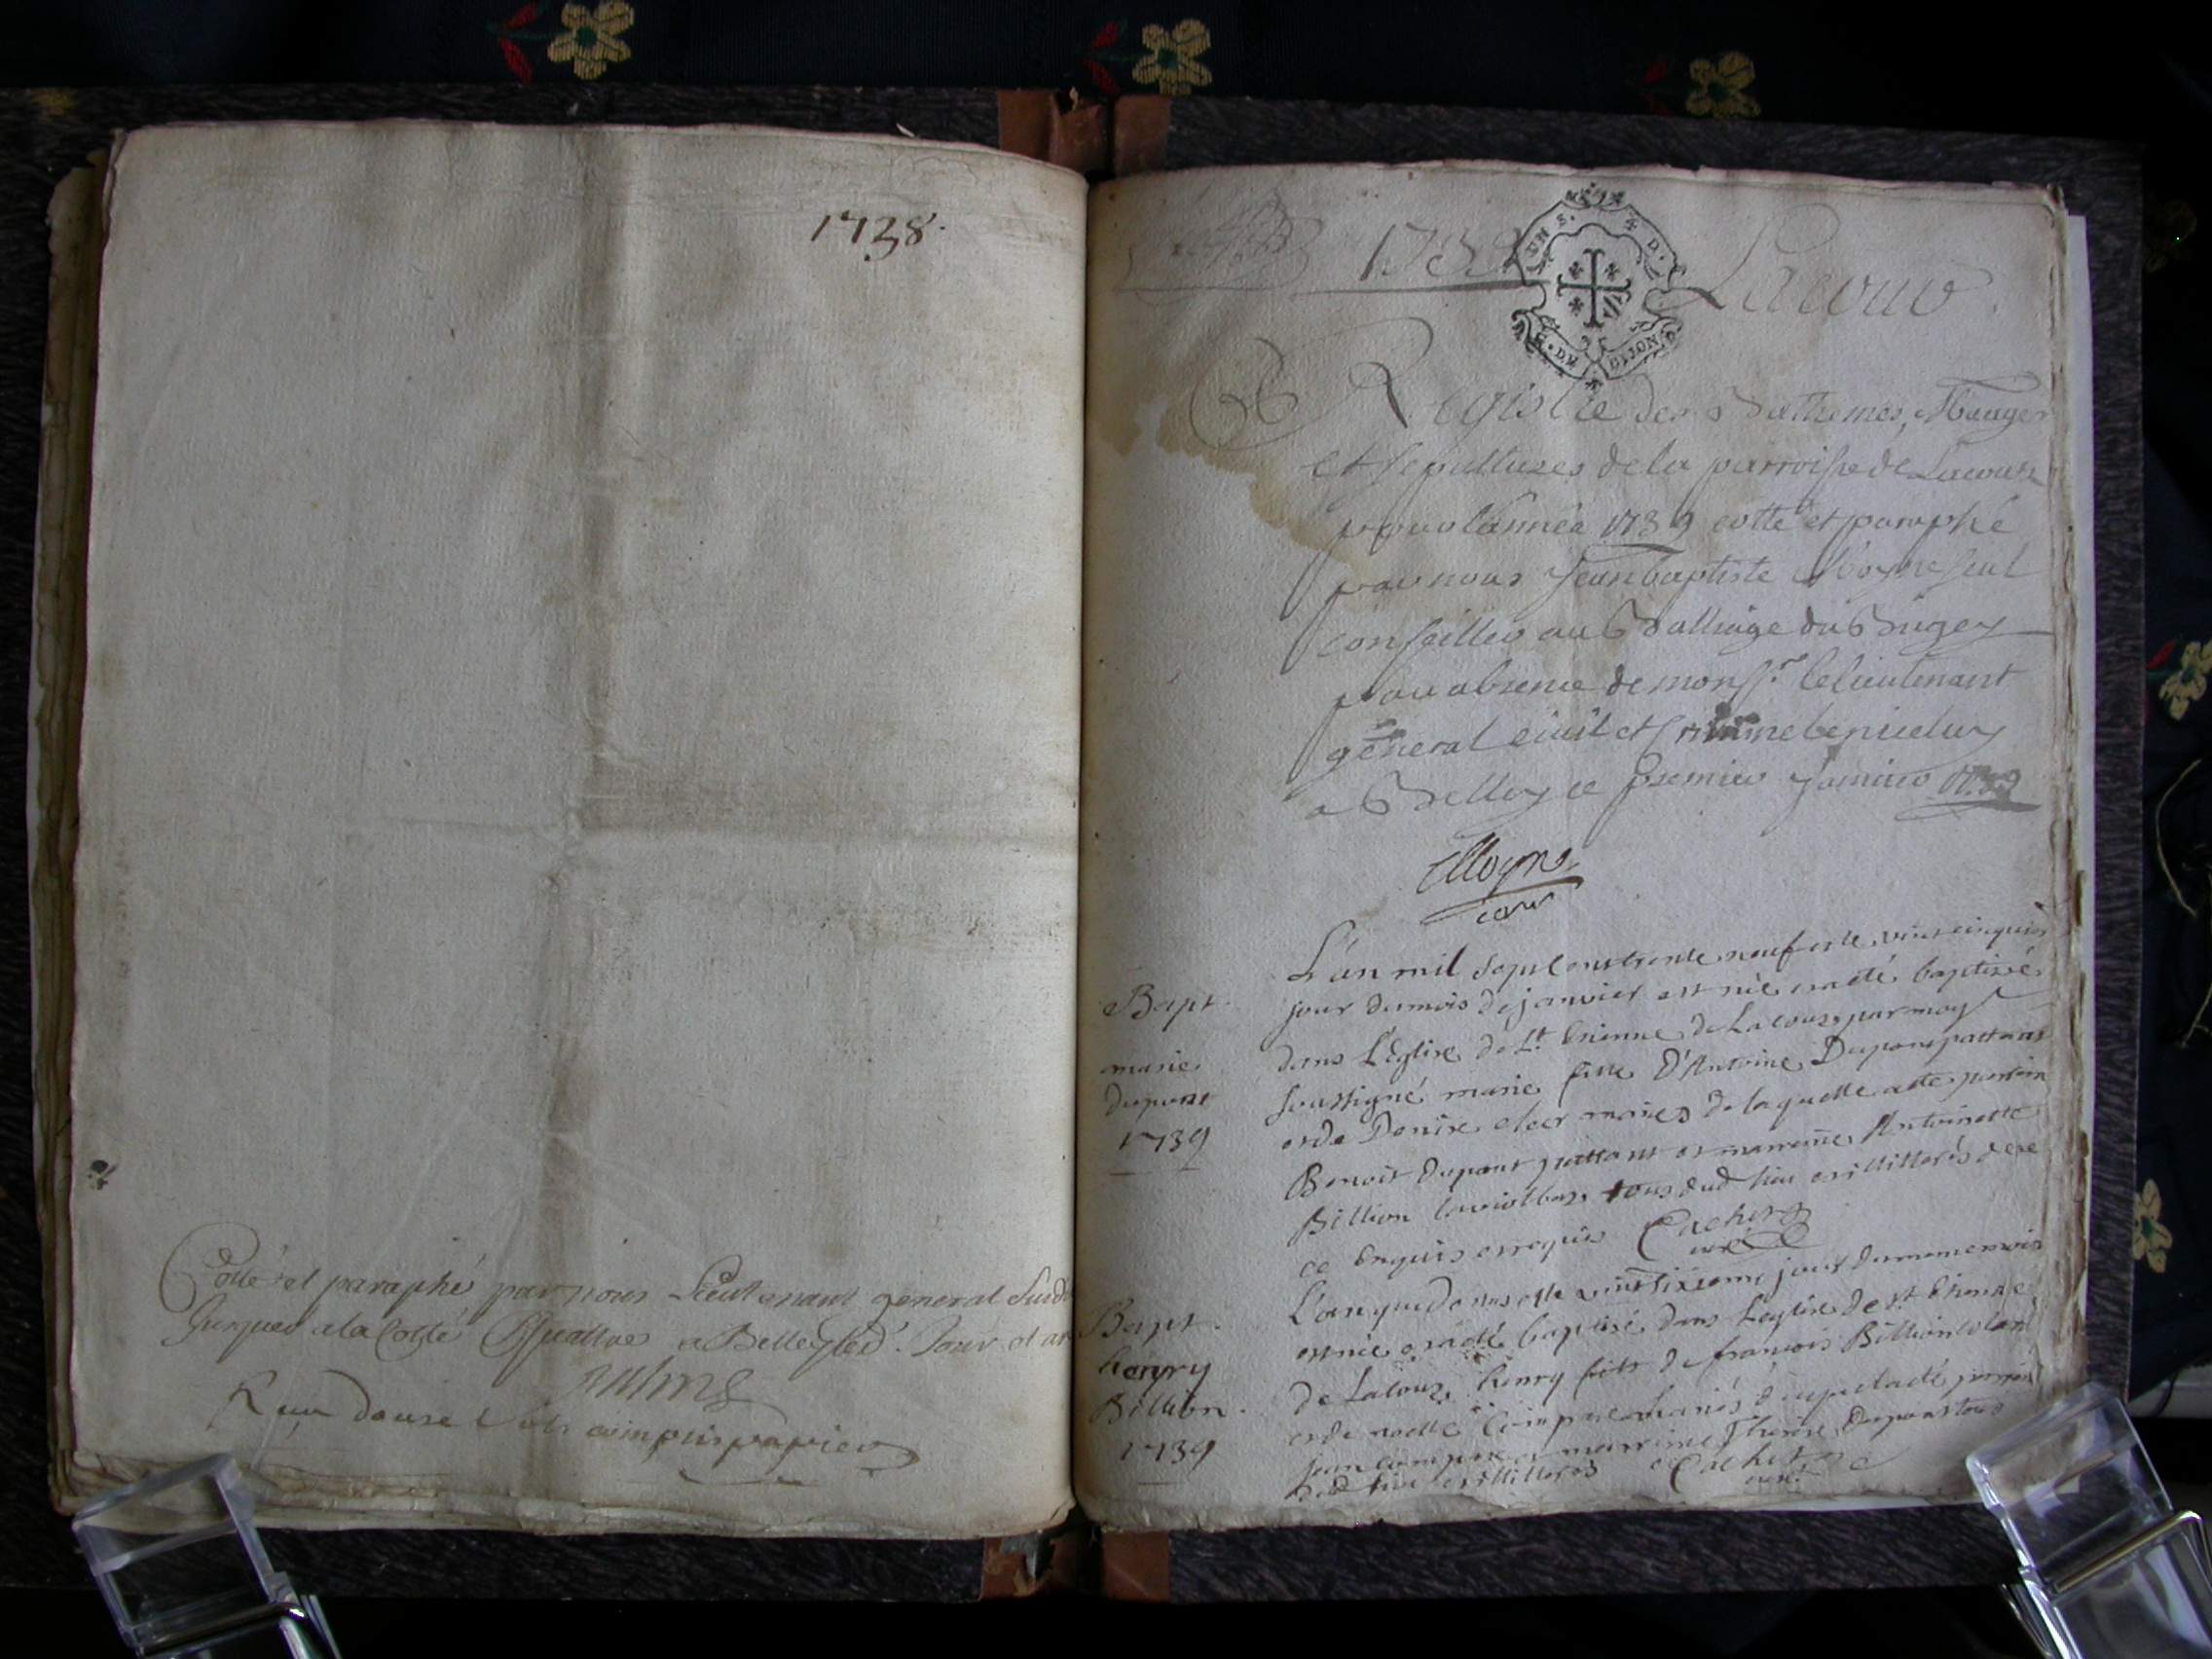 1738.
Cotté et paraphé par nous Lieutenant general
jusques a la Cotte quattre a Belley led. Jour et an
Reçu douze sols compris papier
1739
UN S. 4 D.
G. DE DIJON
Lacoux
Registre des Bathemes, Mariages
et sepultures de la parroisse de Lacoux
pour l'année 1739 cotté et paraphé
par nous Jean baptiste Moyne seul
conseiller au Balliage du Bugey
par absence de monsr. le lieutenant
général civil et criminel
a Belley ce premier Janvier 1739
Moyne
L'an mil sept cent trente neuf et le vint cinquie
Bapt.
jour du mois de janvier est née et a été baptisée
dans l'Eglise de St. Etienne de Lacoux par moy
marie
soussigné marie fille d'Antoine Dupont
dupont
et de Denise mariés de laquelle a été parrin
1739
Benoit Dupont et marreine Antoinette
Billion tous dud lieu et illitterés de ce
ce enquis et requis Cachet
curé
L'an que dessus et le vint sixieme jour du meme mois
Bapt.
est né et a été baptisé dans l'eglise de st Etienne
henry
de Lacoux henry fils de francois Billion
Billion.
et de mariés duquel a été parrin
1739
jean et marreine Therese Dupont tous
dud lieu et illitterés Cachet
curé